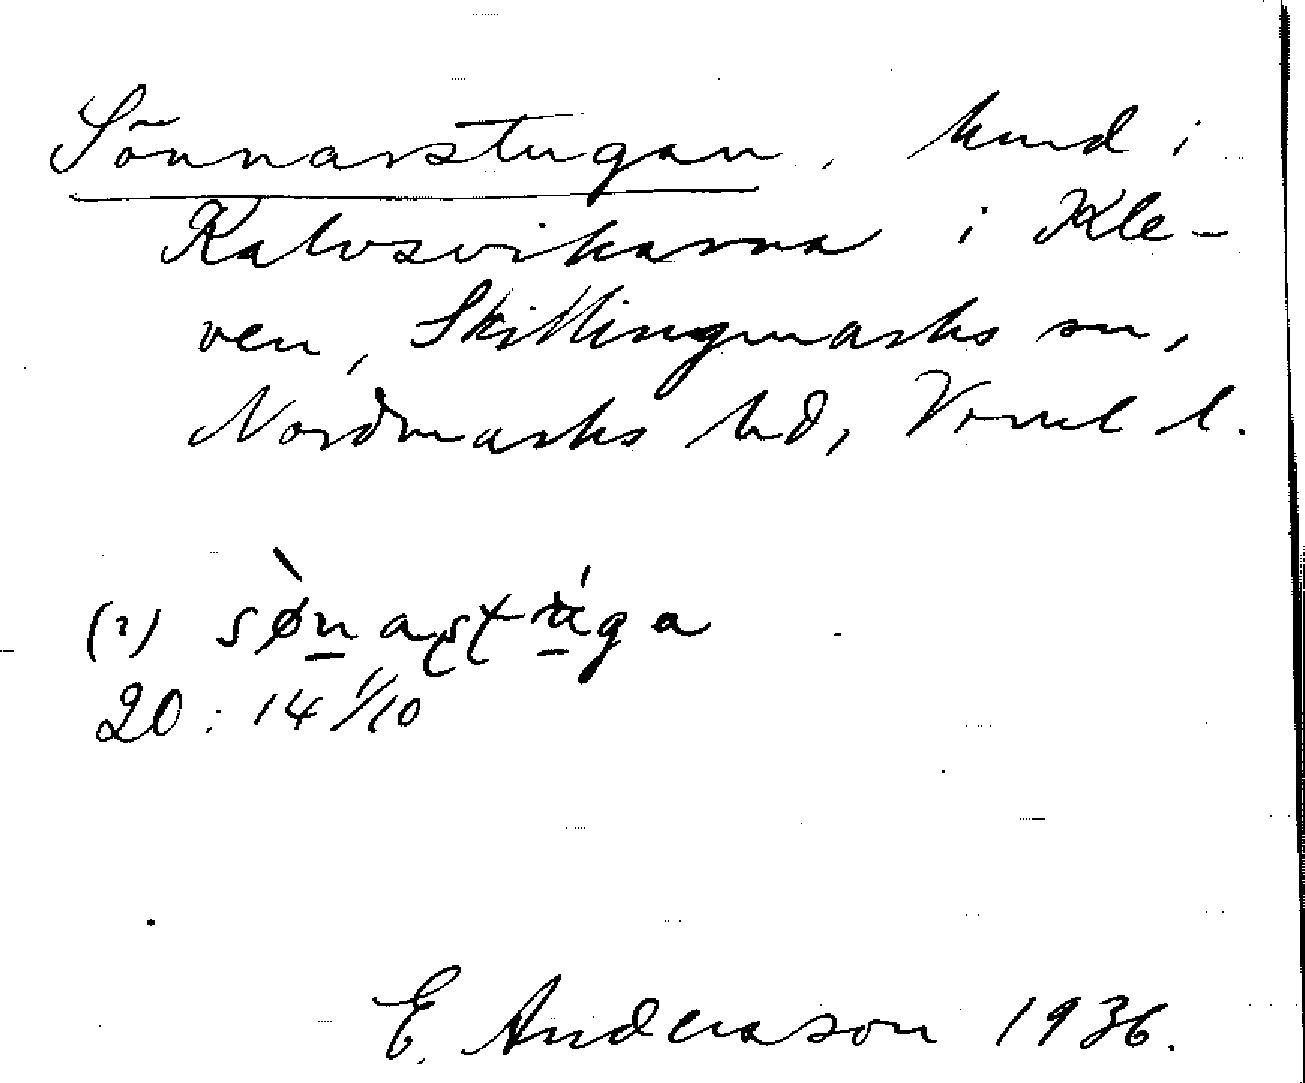 Sönnarstugan, hmd i
Kalvsvikarna i Kle-
ven, Skillingmarks sn,
Nordmarks hd, Vrml l.
(2) sø̀naştúga
20 : 14 1/10
E. Anderson 1936.